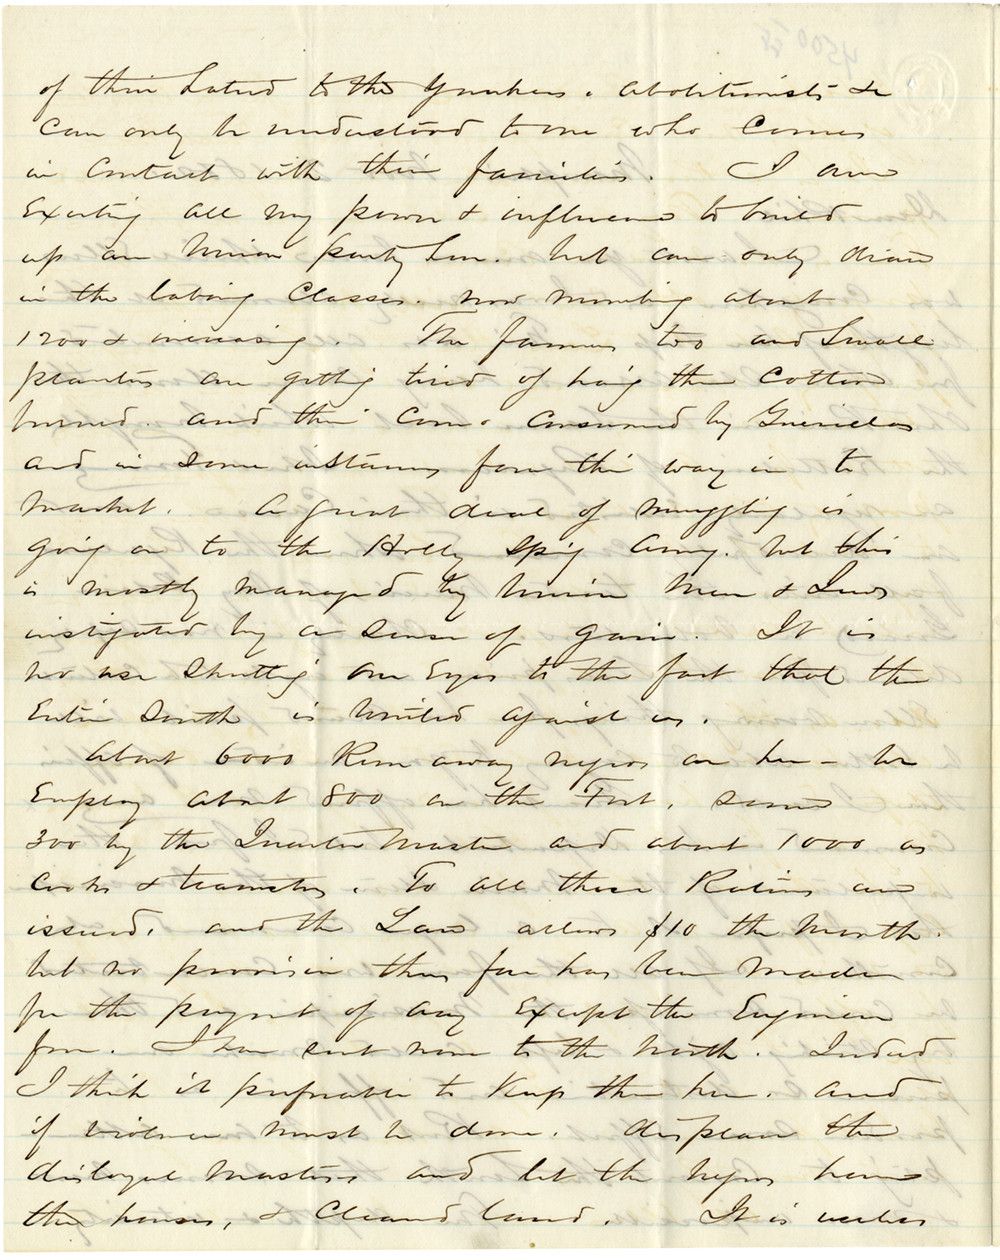 of their hatred to the Yankees. Abolitionists &c
can only be understood to one who comes
in contact with their families. I am
Exerting all my power & influence to build
up an Union party here. but can only draw
in the laboring Classes. now numbering about
1200 & increasing. The farmers too and Small
planters are getting tired of having their Cotton
burned. and their Corn. consumed by Guerrillas
and in some instances force their way in to
market. A great deal of smuggling is
going on to the Holly Spring Army. but this
is mostly managed by Union Men & Jews
instigated by a sense of gain. It is
no use shutting our Eyes to the fact that the
Entire South is United against us.
About 6000 Run away negros are here - we
Employ about 800 on the Fort, some
300 by the Quarter Master and about 1000 as
Cooks & teamsters. To all these Rations are
issued, and the Law allows $10 the Month.
but no provision thus far has been made
for the payment of any Except the Engineer
force. I have sent none to the North. Indeed
I think it preferable to Keep them here. and
if violence must be done. displace the
disloyal masters and let the negros have
the houses, & Cleared land. It is useless